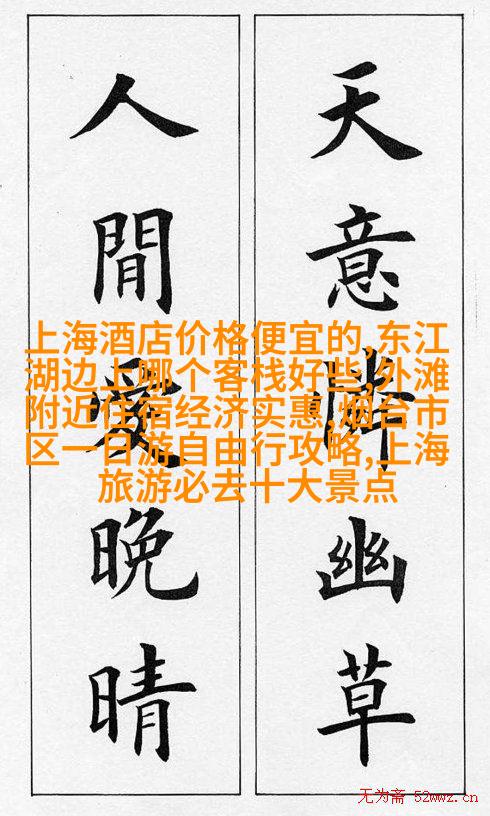 天意憐幽草
人閒愛晚晴
上海酒店价格便宜的,东江
湖边上哪个客栈好些,外滩
附近住宿经济实惠,烟台市
区一日游自由行攻略,上海
旅游必去十大景点
无为斋 52wwz.cn